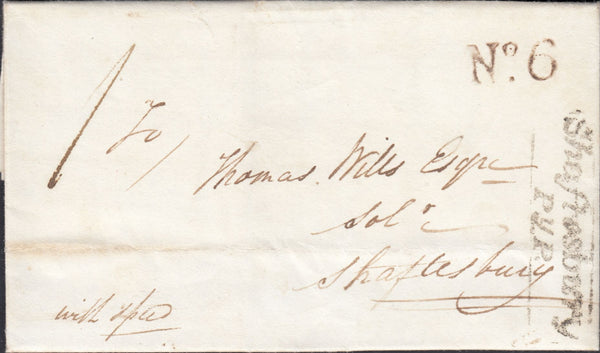 No. 6
1
To/
Thomas Wills Esqre
Solr
Shaftesbury
with speed
Shaftesbury
P.Y.P.